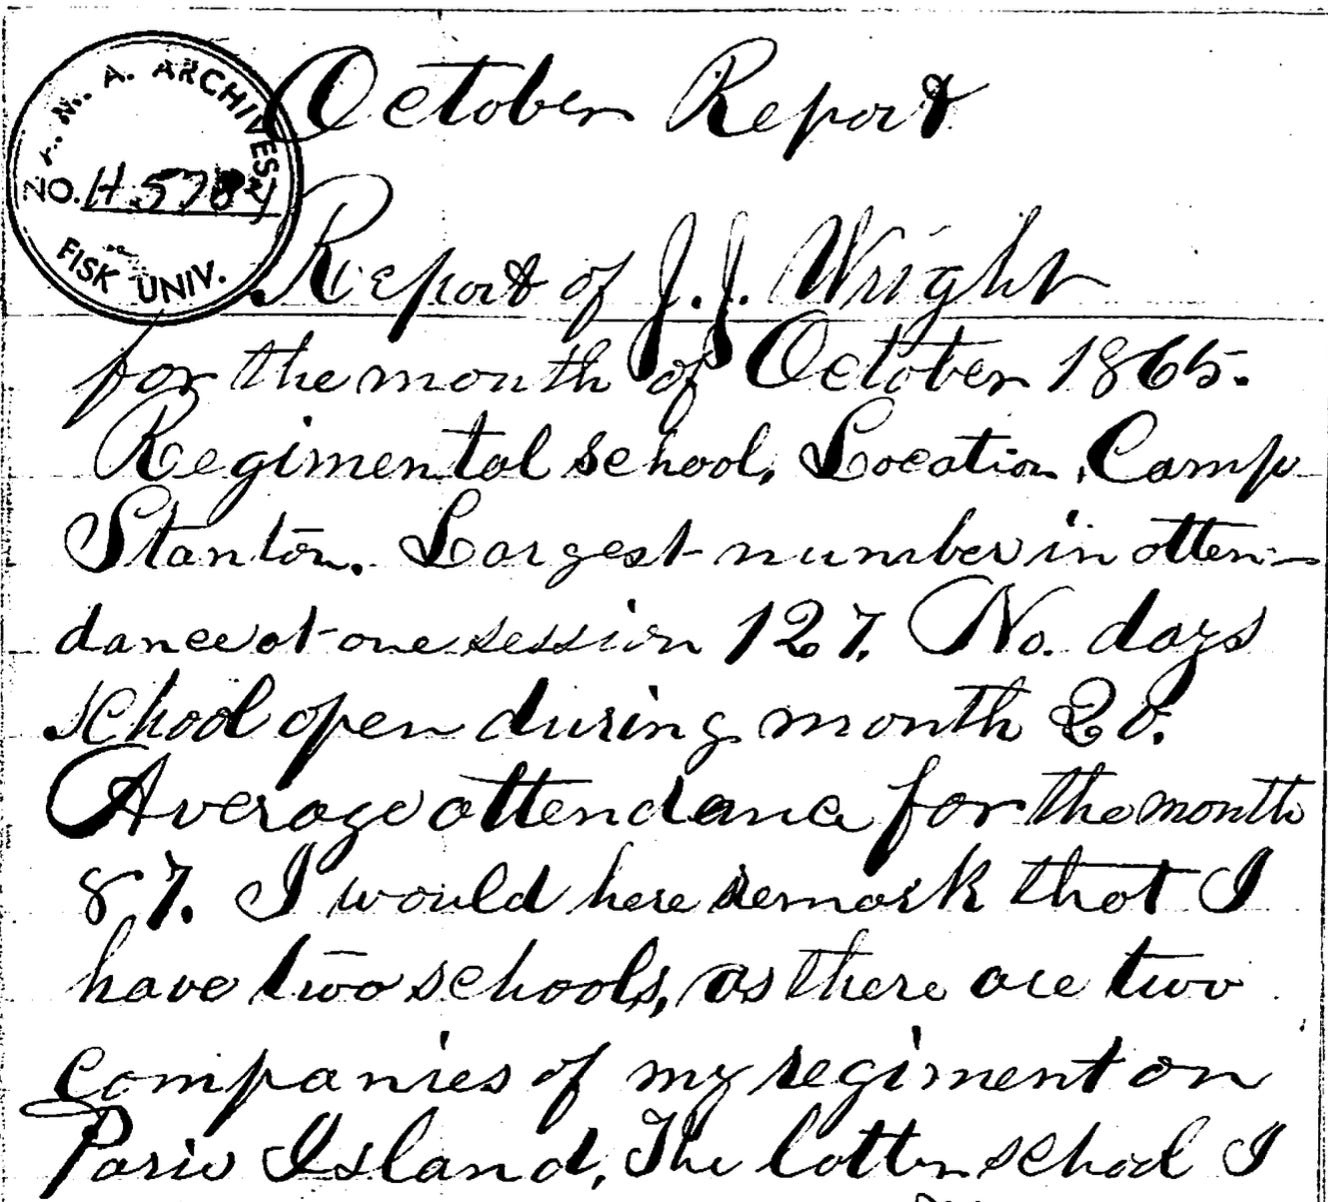 October Report
A. M. A. ARCHIVES
NO. H 5787
FISK UNIV.
Report of J. J. Wright
for the month of October 1865.
Regimental school, Location, Camp
Stanton. Largest number in atten-
dance at one session 127. No. days
school open during month 20.
Average attendance for the month
87. I would here remark that I
have two schools, as there are two
companies of my regiment on
Paris Island, The latter school I